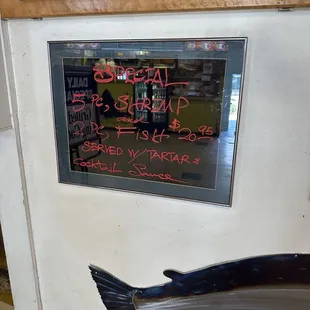 SPECIAL
5 PC, SHRIMP
and
2 PC, FISH $20.95
SERVED W/ TARTAR &
COCKTAIL SAUCE